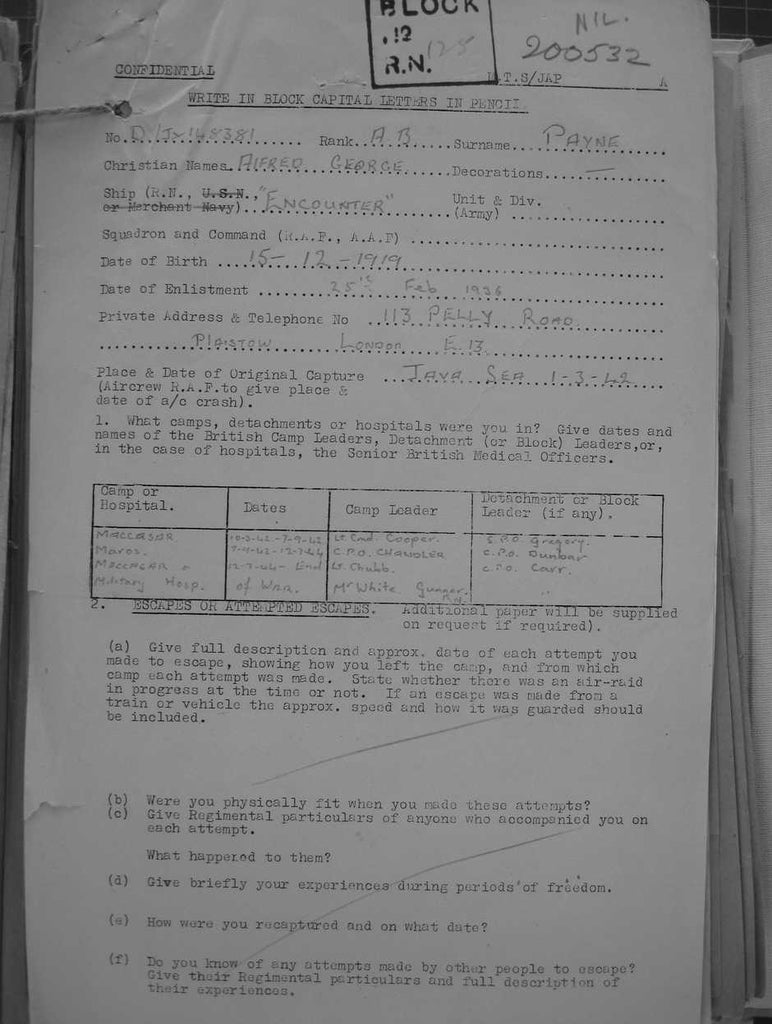 BLOCK
.12
R.N. 125
NIL.
200532
CONFIDENTIAL
T.S/JAP A
WRITE IN BLOCK CAPITAL LETTERS IN PENCIL
No. D/JX148381 Rank. A.B. Surname. PAYNE
Christian Names. ALFRED GEORGE Decorations. —
Ship (R.N., U.S.N., "ENCOUNTER" Unit & Div.
or Merchant Navy) (Army)
Squadron and Command (R.A.F., A.A.F)
Date of Birth 15-12-1919
Date of Enlistment 25th Feb 1936
Private Address & Telephone No 113 PELLY ROAD
PLAISTOW LONDON E.13.
Place & Date of Original Capture JAVA SEA 1-3-42
(Aircrew R.A.F.to give place &
date of a/c crash).
1. What camps, detachments or hospitals were you in? Give dates and
names of the British Camp Leaders, Detachment (or Block) Leaders,or,
in the case of hospitals, the Senior British Medical Officers.
Camp or Hospital. Dates Camp Leader Detachment or Block Leader (if any).
MACCASAR 10-3-42-7-9-42 Lt. Cmd. Cooper. C.P.O. Gregory.
Maros. C.P.O. CHANDLER C.P.O. Dunbar
MACCASAR 12-7-44- End Lt. Chubb. C.P.O. Carr.
Military Hosp. of War. Mr White Gunner. R.N.
2. ESCAPES OR ATTEMPTED ESCAPES. Additional paper will be supplied
on request if required).
(a) Give full description and approx. date of each attempt you
made to escape, showing how you left the camp, and from which
camp each attempt was made. State whether there was an air-raid
in progress at the time or not. If an escape was made from a
train or vehicle the approx. speed and how it was guarded should
be included.
(b) Were you physically fit when you made these attempts?
(c) Give Regimental particulars of anyone who accompanied you on
each attempt.
What happened to them?
(d) Give briefly your experiences during periods of freedom.
(e) How were you recaptured and on what date?
(f) Do you know of any attempts made by other people to escape?
Give their Regimental particulars and full description of
their experiences.